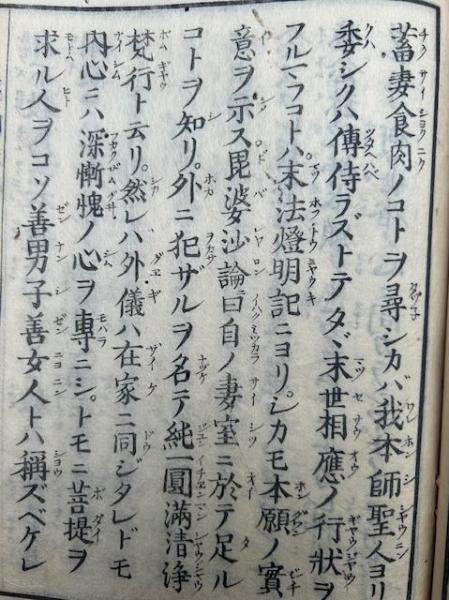 蓄妻食肉ノコトヲ尋シカバ我本師聖人ヨリ
委シクハ傳侍ラズトテタヾ末世相應ノ行狀ヲ
フルマフコトハ末法燈明記ニヨリ。シカモ本願ノ實
意ヲ示ス毘婆沙論曰自ノ妻室ニ於テ足ル
コトヲ知リ。外ニ犯ザルヲ名テ純一圓滿清淨
梵行ト云リ。然レバ外儀ハ在家ニ同ジタレドモ
內心ニハ深慚愧ノ心ヲ專ニシ。トモニ菩提ヲ
求ル人ヲコソ善男子善女人トハ稱ズベケレ